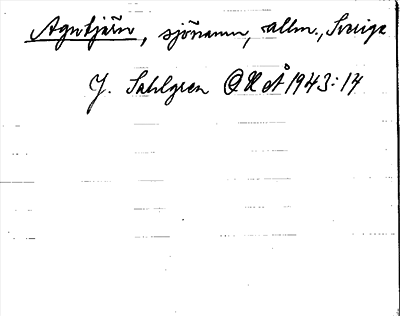 Agntjärn, sjönamn, allm., Sverige
J. Sahlgren OHÅ 1943:14